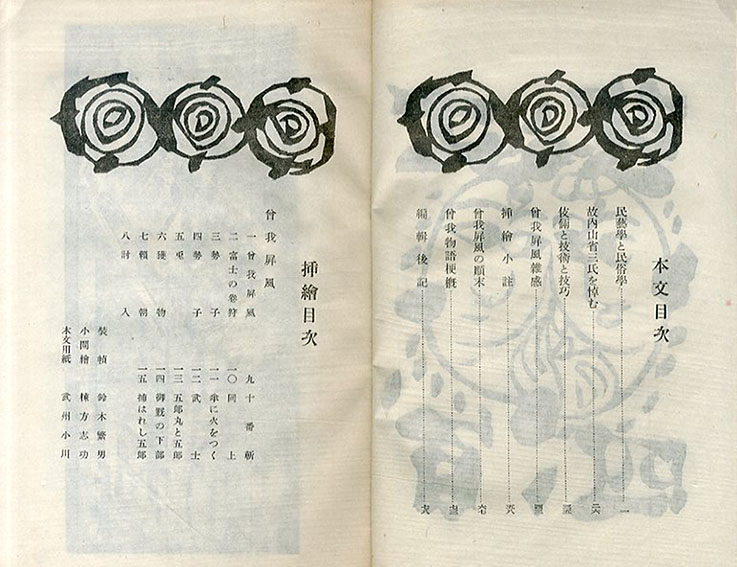 本文目次
民藝學と民俗學 一
故內山省三氏を悼む
伎倆と技術と技巧
曾我屛風雜感
挿繪小註
曾我屛風の顚末
曾我物語梗槪
編輯後記
挿繪目次
曾我屛風
一 曾我屛風
二 富士の卷狩
三 勢子
四 勢子
五 兎
六 獲物
七 賴朝
八 討入
九 十番斬
一〇 同上
一一 傘に火をつく
一二 武士
一三 五郎丸と五郎
一四 御厩の下部
一五 捕はれし五郎
裝幀 鈴木繁男
小間繪 棟方志功
本文用紙 武州小川